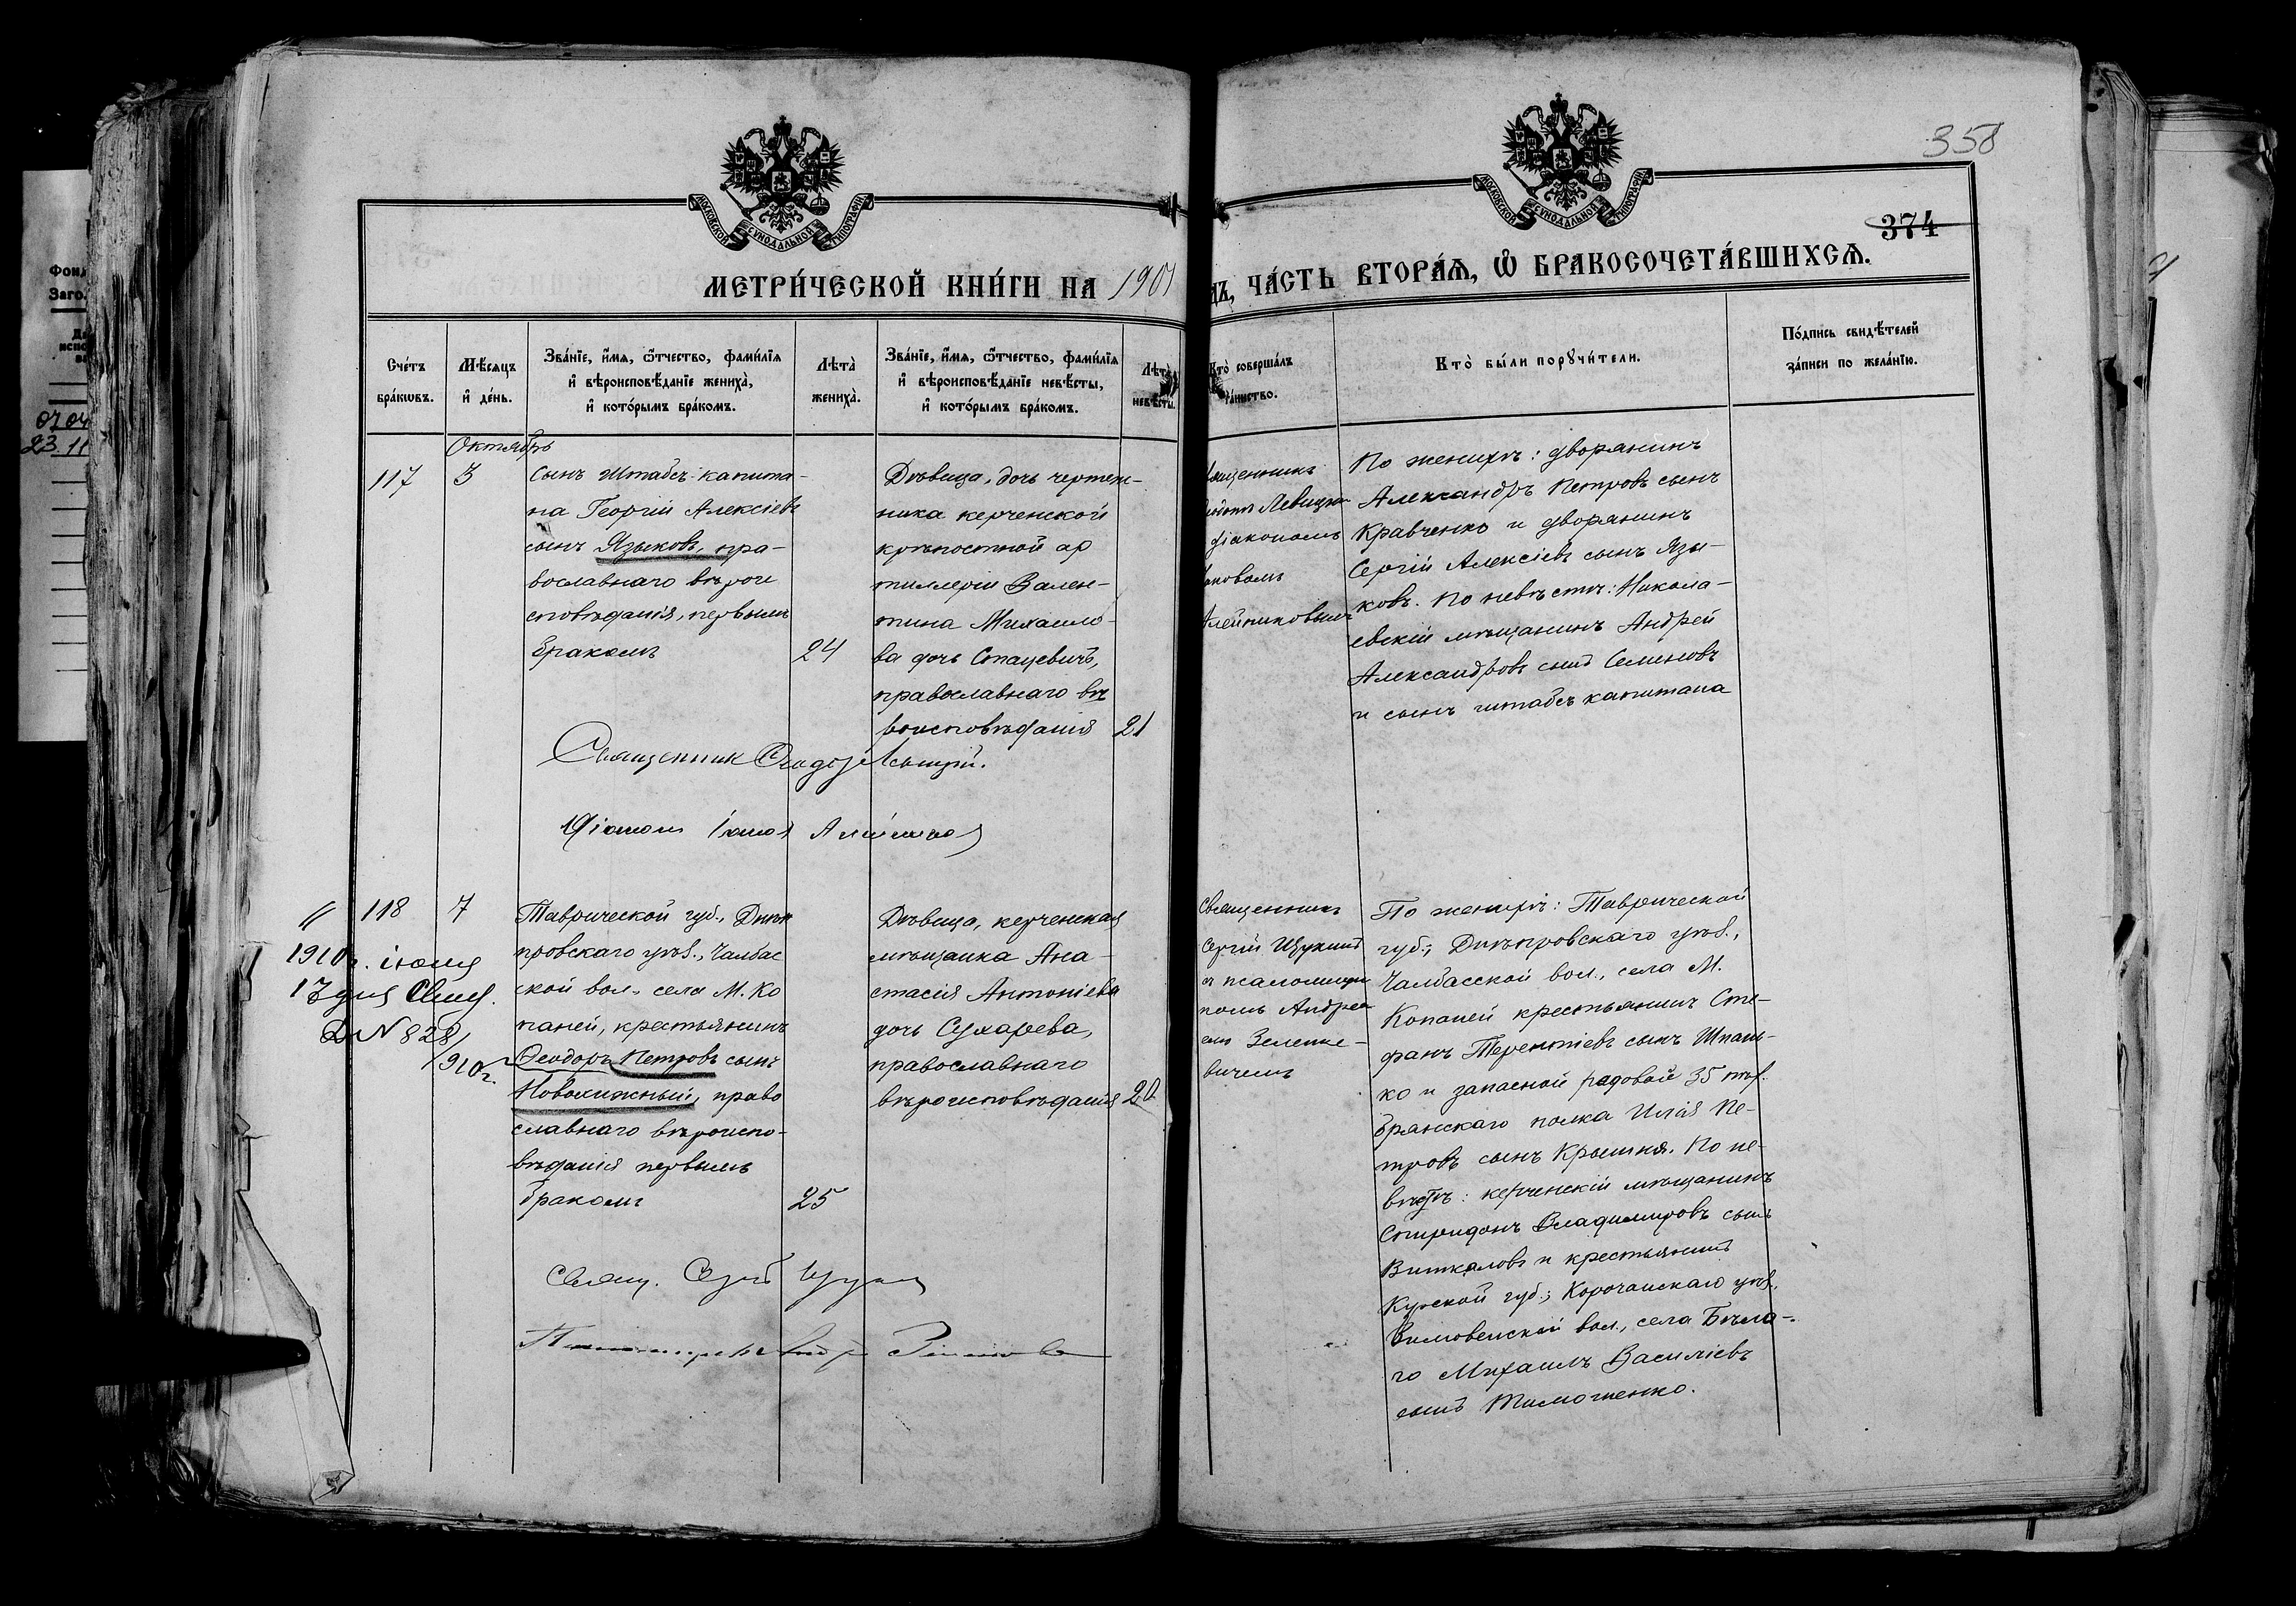 358
374
МОСКОВСКОЙ СУНОДАЛЬНОЙ ТИПОГРАФІИ
МОСКОВСКОЙ СУНОДАЛЬНОЙ ТИПОГРАФІИ
МЕТРИ́ЧЕСКОЙ КНИ́ГИ НА 1901
ДЪ, ЧА́СТЬ ВТОРА́Ѧ, Ѡ҆ БРАКОСОЧЕТА́ВШИХСѦ.
Сче́тъ бра́кѡвъ.
Мѣ́сѧцъ и҆ де́нь.
Зва́нїе, и҆́мѧ, ѻ҆́тчество, фами́лїѧ и҆ вѣроисповѣ́данїе жениха̀, и҆ кото́рымъ бра́комъ.
Лѣта̀ жениха̀.
Зва́нїе, и҆́мѧ, ѻ҆́тчество, фами́лїѧ и҆ вѣроисповѣ́данїе невѣ́сты, и҆ кото́рымъ бра́комъ.
Лѣта̀ невѣ́сты.
Кто̀ соверша́лъ та́инство.
Кто̀ бы́ли порꙋчи́тели.
По́дпись свидѣ́телей за́писи по жела́нїю.
Октябрь
117
3
Сынъ Штабсъ-капита-
на Георгій Алексіевъ
сынъ Языковъ, пра-
вославнаго вѣрои
сповѣданія, первымъ
бракомъ
24
Дѣвица, дочь чертеж-
ника керченской
крѣпостной ар
тиллеріи Вален-
тина Михаило-
ва дочь Стацевичъ,
православнаго вѣ
роисповѣданія
21
Священникъ
Левицк
діакономъ
Алейниковымъ
По женихѣ: дворянинъ
Александръ Петровъ сынъ
Кравченко и дворянинъ
Сергій Алексіевъ сынъ Язы-
ковъ. По невѣстѣ: Никола-
евскій мѣщанинъ Андрей
Александровъ сынъ Семеновъ
и сынъ штабсъ капитана
Священник
118
7
1910г. іюня
17 дня Свид.
№ 828
1910г.
Таврической губ., Днѣ
провскаго уѣз., Чалбас
ской вол., села М. Ко
паней, крестьянинъ
Ѳеодоръ Петровъ сынъ
Новохижный, право
славнаго вѣроиспо-
вѣданія первымъ
бракомъ
25
Дѣвица, керченская
мѣщанка Ана-
стасія Антоніева
дочь Сухарева,
православнаго
вѣроисповѣданія
20
Священникъ
Сергій Щукинъ
и псаломщи
комъ Андре
емъ Зеленке-
вичемъ
По женихѣ: Таврической
губ., Днѣпровскаго уѣз.,
Чалбасской вол., села М.
Копаней крестьянинъ Сте-
фанъ Терентіевъ сынъ Шпань-
ко и запасной рядовой 35 пѣх.
Брянскаго полка Илія Пе-
тровъ сынъ Крышня. По не-
вѣстѣ: керченскій мѣщанинъ
Спиридонъ Владимировъ сынъ
Виткаловъ и крестьянинъ
Курской губ., Корочанскаго уѣз.,
Зимовенской вол., села Бѣла-
го Михаилъ Василіевъ
сынъ Тимошенко.
Свящ.